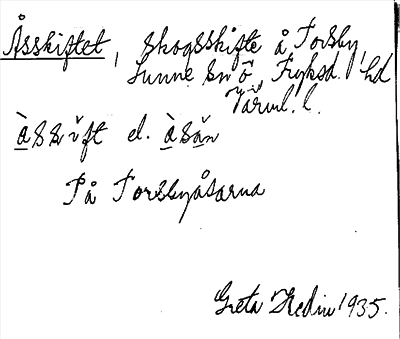 Åsskiftet, skogsskifte å Torsby,
Sunne sn ö, Fryksd. hd
Värml. l.
å̀sšift el. å̀săn
På Torsbyåsarna
Greta Hedin 1935.